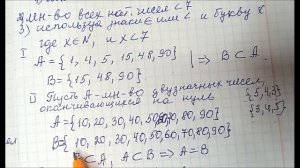 2) мн-во всех нат. чисел < 7
3) используя знаки ∈ или < и букву x
где x∈N, и x<7
I A = {1, 4, 5, 15, 48, 90} | ⇒ B⊂A.
B = {15, 48, 90}
II Пусть A-мн-во двузначных чисел,
оканчивающихся на нуль {5,4,3}
A = {10, 20, 30, 40, 50, 60, 70, 80, 90} {3,4,5}
B = {10, 20, 30, 40, 50, 60, 70, 80, 90}
B⊂A, A⊂B ⇒ A=B